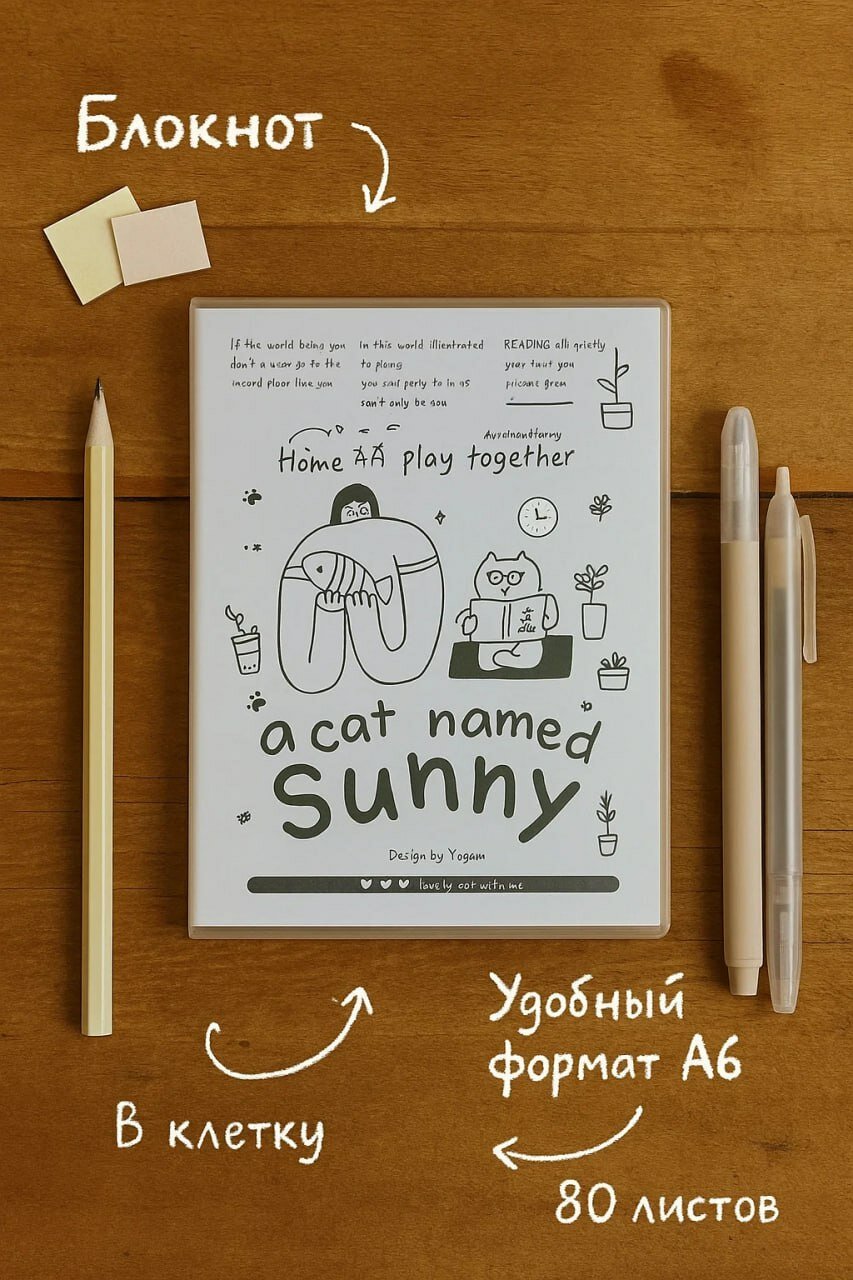 Блокнот
If the world being you
don't a wear go to the
incord ploor line you
In this world illientrated
to plaing
you said perly to in as
san't only be sou
READING alli qrietly
year twut you
pricome grem
Avralnandfarmy
Home play together
a cat named
sunny
Design by Yogam
lovely cot with me
Удобный
формат А6
В клетку
80 листов